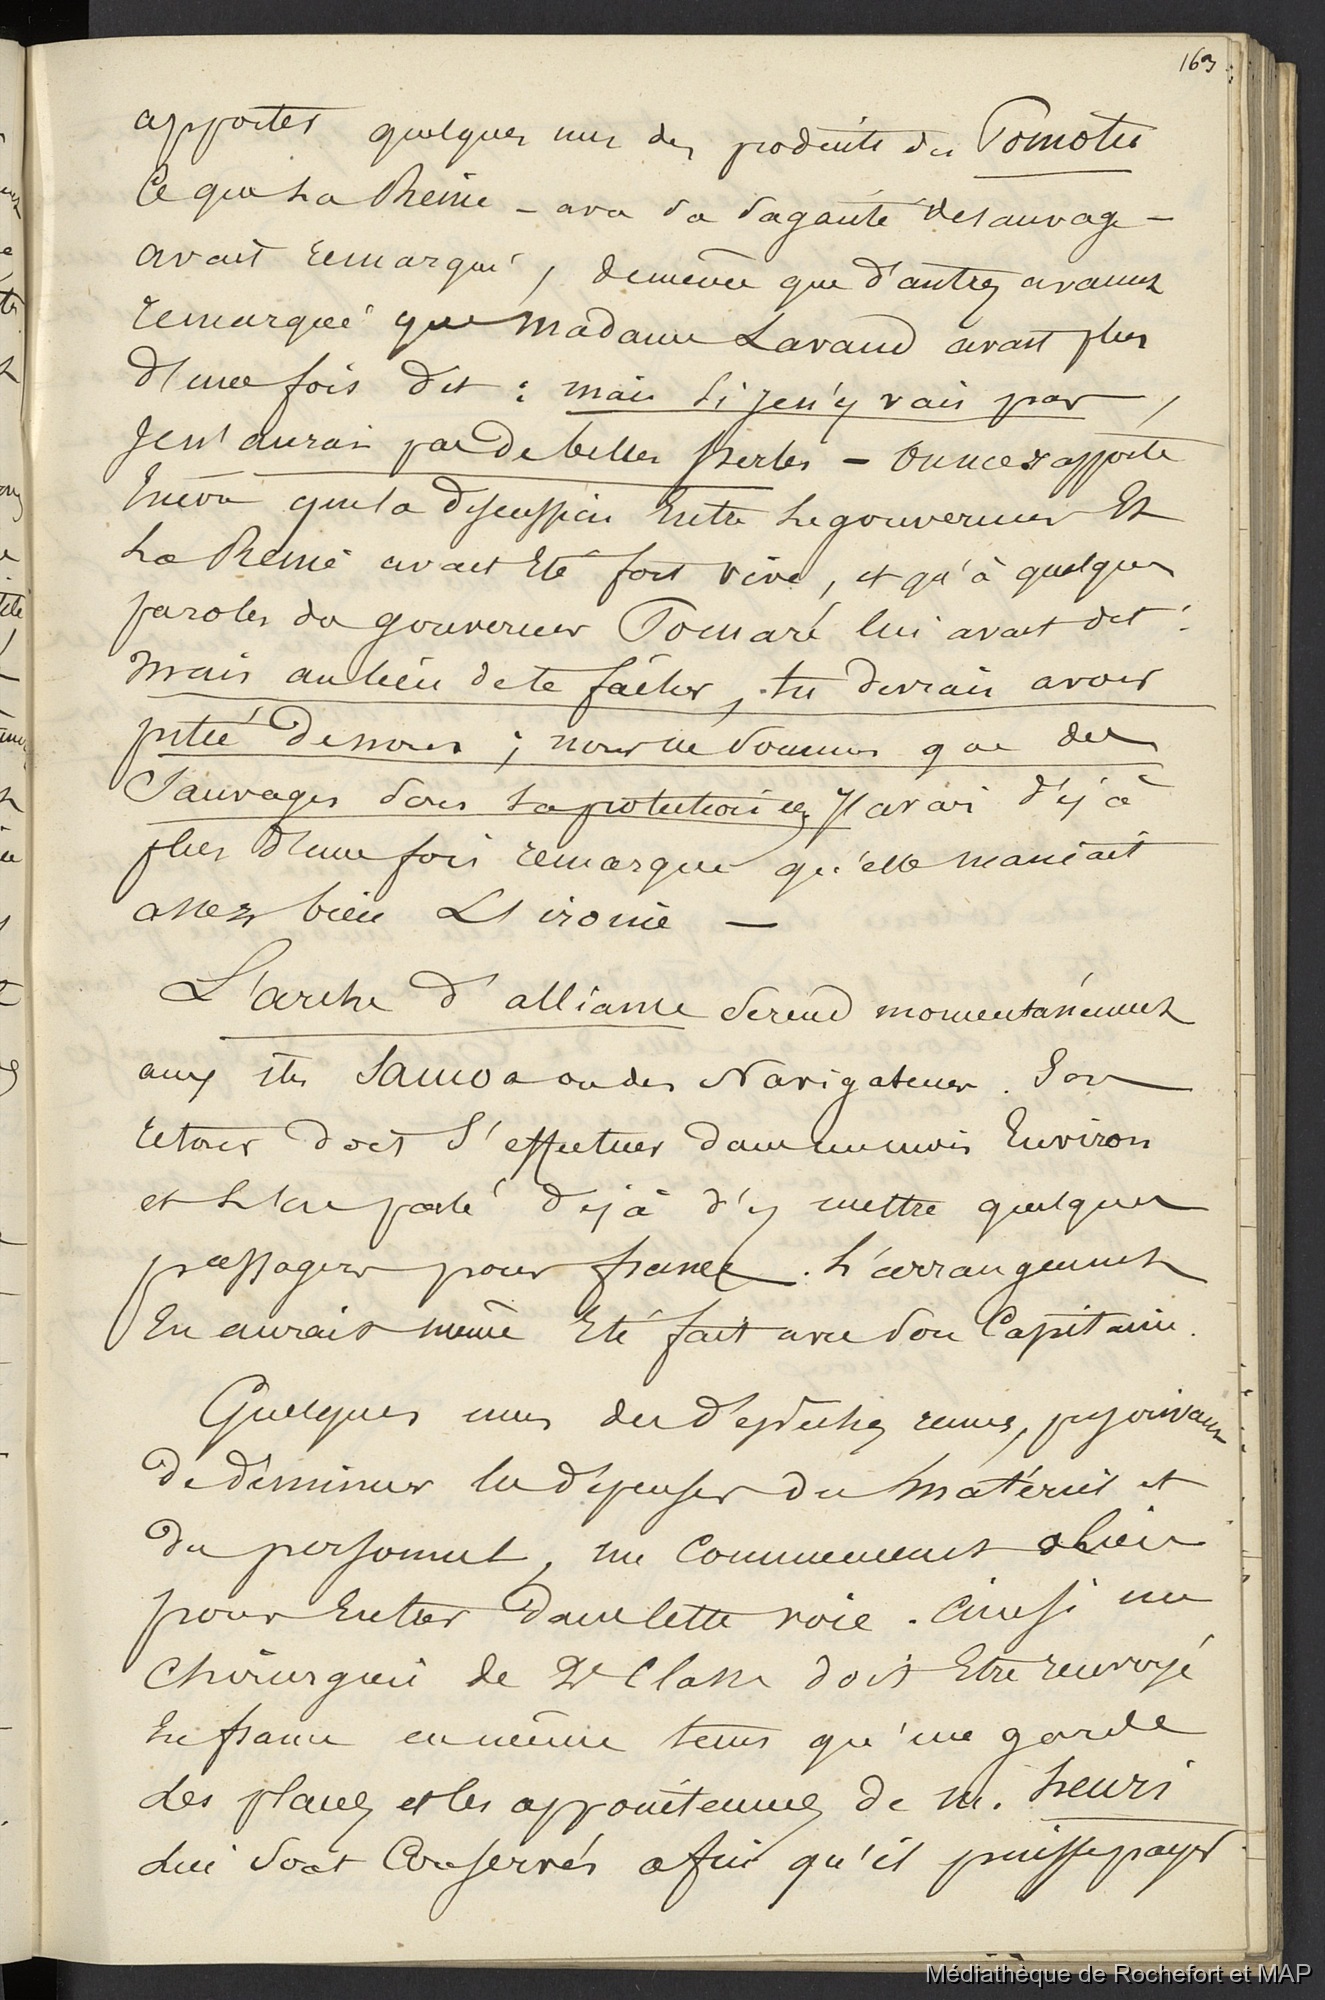 163
apporter quelques uns des produits des Pomotu
Ce que La Reine – avec sa sagacité de sauvage –
avait remarqué, de même que d'autres avaient
remarqué que Madame Lavaud avait plus
d'une fois dit : mais si je n'y vais pas,
Je n'aurai pas de belles perles – On me rapporte
Encore que la discussion Entre Le gouverneur Et
La Reine avait Eté fort vive, et qu'à quelques
paroles du gouverneur Pomaré lui avait dit :
mais au lieu de te fâcher, tu devrais avoir
pitié de nous ; nous ne sommes que des
Sauvages sous ta protection. J'avais déjà
plus d'une fois remarqué qu'elle maniait
assez bien L'ironie –
L'arche d'alliance se rend momentanément
aux iles Samoa ou des Navigateurs. Son
retour doit S'effectuer dans un mois Environ
et L'on parle déjà d'y mettre quelques
passagers pour france. L'arrangement
En aurait même Eté fait avec son Capitaine.
Quelques unes des dépêches reçues, prescrivant
de diminuer les dépenses du matériel et
du personnel, un commencement a lieu
pour Entrer dans cette voie. ainsi un
chirurgien de 2e Classe doit Etre renvoyé
En france en même tems qu'un garde
des places et les appointemens de M. henri
Lui sont Conservés afin qu'il puisse payer
Médiathèque de Rochefort et MAP